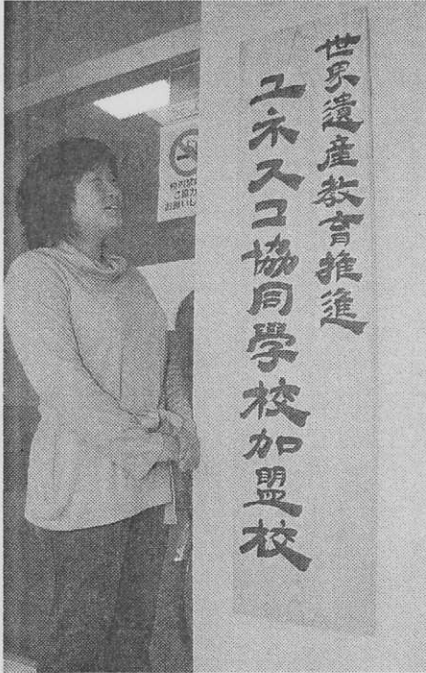 世界遺産教育推進
ユネスコ協同學校加盟校